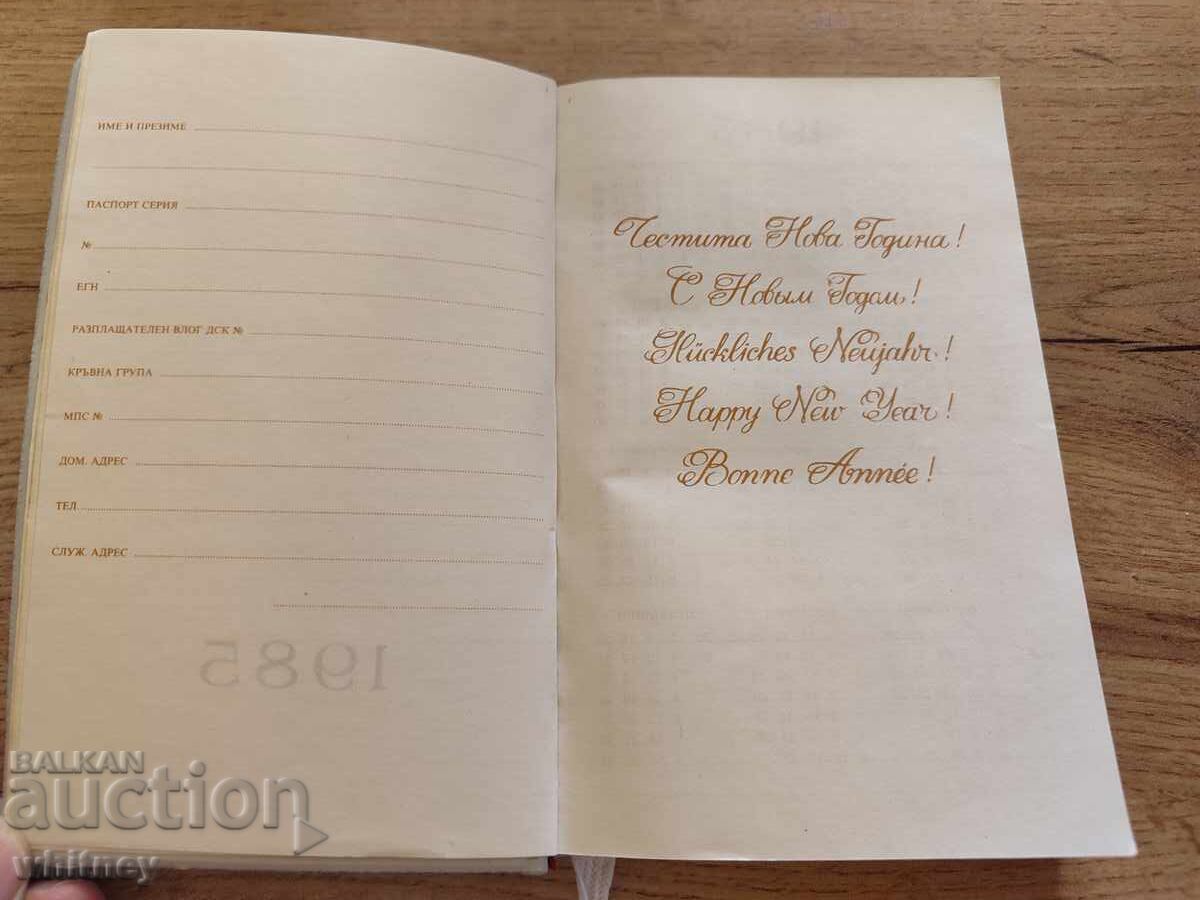 ИМЕ И ПРЕЗИМЕ
ПАСПОРТ СЕРИЯ
№
ЕГН
РАЗПЛАЩАТЕЛЕН ВЛОГ ДСК №
КРЪВНА ГРУПА
МПС №
ДОМ. АДРЕС
ТЕЛ.
СЛУЖ. АДРЕС
1985
Честита Нова Година!
С Новым Годом!
Glückliches Neujahr!
Happy New Year!
Bonne Année!
BALKAN
auction
whitney